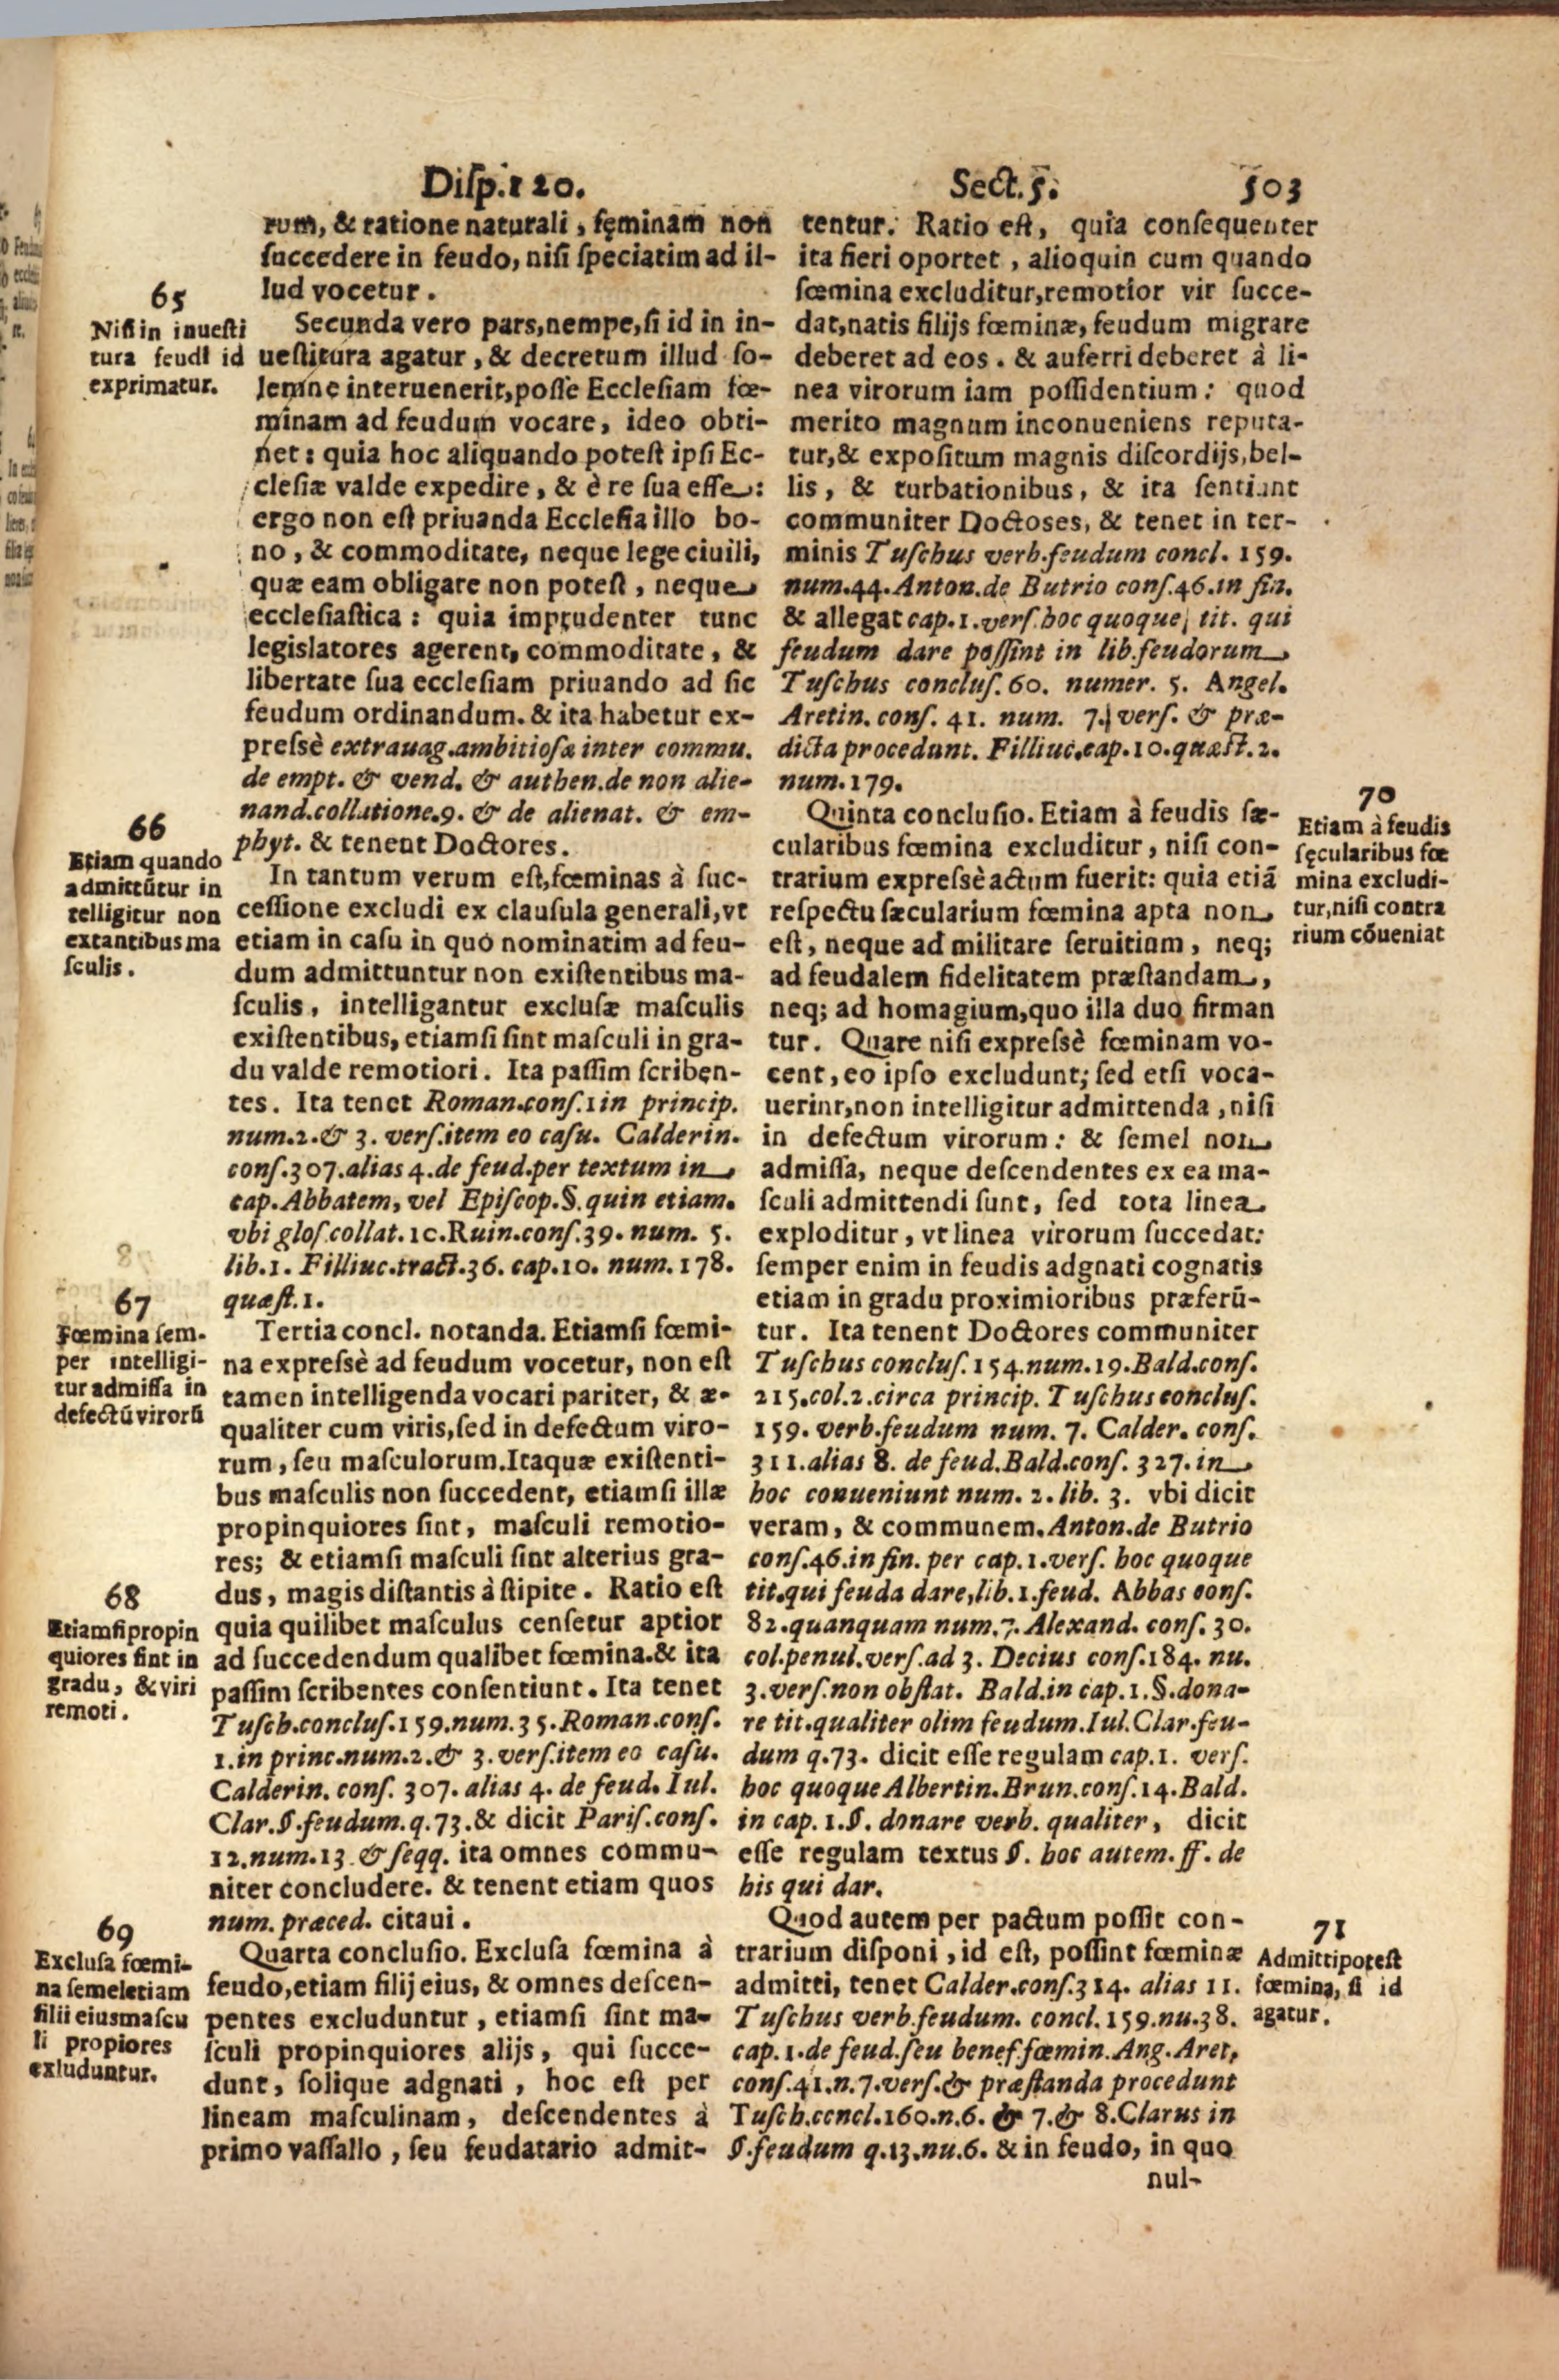 Disp. 120. Sect. 5. 503
rum, & ratione naturali, fęminam non
succedere in feudo, nisi speciatim ad il-
lud vocetur.
65
Nisi in inuesti
tura feudi id
exprimatur.
Secunda vero pars, nempe, si id in in-
uestitura agatur, & decretum illud so-
lemne interuenerit, posse Ecclesiam fœ-
minam ad feudum vocare, ideo obti-
net: quia hoc aliquando potest ipsi Ec-
clesiæ valde expedire, & è re sua esse:
ergo non est priuanda Ecclesia illo bo-
no, & commoditate, neque lege ciuili,
quæ eam obligare non potest, neque
ecclesiastica: quia imprudenter tunc
legislatores agerent, commoditate, &
libertate sua ecclesiam priuando ad sic
feudum ordinandum. & ita habetur ex-
pressè extrauag. ambitiosæ inter commu.
de empt. & vend. & authen. de non alie-
nand. collatione. 9. & de alienat. & em-
phyt. & tenent Doctores.
66
Etiam quando
admittūtur in
telligitur non
extantibus ma
sculis.
In tantum verum est, fœminas à suc-
cessione excludi ex clausula generali, vt
etiam in casu in quo nominatim ad feu-
dum admittuntur non existentibus ma-
sculis, intelligantur exclusæ masculis
existentibus, etiamsi sint masculi in gra-
du valde remotiori. Ita passim scriben-
tes. Ita tenet Roman. cons. 1 in princip.
num. 2. & 3. vers. item eo casu. Calderin.
cons. 307. alias 4. de feud. per textum in
cap. Abbatem, vel Episcop. §. quin etiam.
vbi glos. collat. 1c. Ruin. cons. 39. num. 5.
lib. 1. Filliuc. tract. 36. cap. 10. num. 178.
quæst. 1.
67
Fœmina sem-
per intelligi-
tur admissa in
defectū virorū
Tertia concl. notanda. Etiamsi fœmi-
na expressè ad feudum vocetur, non est
tamen intelligenda vocari pariter, & æ-
qualiter cum viris, sed in defectum viro-
rum, seu masculorum. Itaquæ existenti-
bus masculis non succedent, etiamsi illæ
propinquiores sint, masculi remotio-
res; & etiamsi masculi sint alterius gra-
dus, magis distantis à stipite. Ratio est
quia quilibet masculus censetur aptior
ad succedendum qualibet fœmina. & ita
passim scribentes consentiunt. Ita tenet
Tusch. conclus. 159. num. 35. Roman. cons.
1. in princ. num. 2. & 3. vers. item eo casu.
Calderin. cons. 307. alias 4. de feud. Iul.
Clar. §. feudum. q. 73. & dicit Paris. cons.
12. num. 13. & seqq. ita omnes commu-
niter concludere. & tenent etiam quos
num. præced. citaui.
68
Etiamsi propin
quiores sint in
gradu, & viri
remoti.
69
Exclusa fœmi-
na semel etiam
filii eius mascu
li propiores
exluduntur.
Quarta conclusio. Exclusa fœmina à
feudo, etiam filij eius, & omnes descen-
pentes excluduntur, etiamsi sint ma-
sculi propinquiores alijs, qui succe-
dunt, solique adgnati, hoc est per
lineam masculinam, descendentes à
primo vassallo, seu feudatario admit-
tentur. Ratio est, quia consequenter
ita fieri oportet, alioquin cum quando
fœmina excluditur, remotior vir succe-
dat, natis filijs fœminæ, feudum migrare
deberet ad eos. & auferri deberet à li-
nea virorum iam possidentium: quod
merito magnum inconueniens reputa-
tur, & expositum magnis discordijs, bel-
lis, & turbationibus, & ita sentiunt
communiter Doctoses, & tenet in ter-
minis Tuschus verb. feudum concl. 159.
num. 44. Anton. de Butrio cons. 46. in fin.
& allegat cap. 1. vers. hoc quoque, tit. qui
feudum dare possint in lib. feudorum
Tuschus conclus. 60. numer. 5. Angel.
Aretin. cons. 41. num. 7. vers. & præ-
dicta procedunt. Filliuc. cap. 10. quæst. 2.
num. 179.
70
Etiam à feudis
sęcularibus fœ
mina excludi-
tur, nisi contra
rium cōueniat
Quinta conclusio. Etiam à feudis sæ-
cularibus fœmina excluditur, nisi con-
trarium expressè actum fuerit: quia etiā
respectu sæcularium fœmina apta non
est, neque ad militare seruitium, neq;
ad feudalem fidelitatem præstandam,
neq; ad homagium, quo illa duo firman
tur. Quare nisi expressè fœminam vo-
cent, eo ipso excludunt; sed etsi voca-
uerint, non intelligitur admittenda, nisi
in defectum virorum: & semel non
admissa, neque descendentes ex ea ma-
sculi admittendi sunt, sed tota linea
exploditur, vt linea virorum succedat:
semper enim in feudis adgnati cognatis
etiam in gradu proximioribus præferū-
tur. Ita tenent Doctores communiter
Tuschus conclus. 154. num. 19. Bald. cons.
215. col. 2. circa princip. Tuschus conclus.
159. verb. feudum num. 7. Calder. cons.
311. alias 8. de feud. Bald. cons. 327. in
hoc conueniunt num. 2. lib. 3. vbi dicit
veram, & communem. Anton. de Butrio
cons. 46. in fin. per cap. 1. vers. hoc quoque
tit. qui feuda dare, lib. 1. feud. Abbas cons.
82. quanquam num. 7. Alexand. cons. 30.
col. penul. vers. ad 3. Decius cons. 184. nu.
3. vers. non obstat. Bald. in cap. 1. §. dona-
re tit. qualiter olim feudum. Iul. Clar. feu-
dum q. 73. dicit esse regulam cap. 1. vers.
hoc quoque Albertin. Brun. cons. 14. Bald.
in cap. 1. §. donare verb. qualiter, dicit
esse regulam textus §. hoc autem. ff. de
his qui dar.
71
Admitti potest
fœmina, si id
agatur.
Quod autem per pactum possit con-
trarium disponi, id est, possint fœminæ
admitti, tenet Calder. cons. 314. alias 11.
Tuschus verb. feudum. concl. 159. nu. 38.
cap. 1. de feud. seu benef. fœmin. Ang. Aret.
cons. 41. n. 7. vers. & præstanda procedunt
Tusch. concl. 160. n. 6. & 7. & 8. Clarus in
§. feudum q. 13. nu. 6. & in feudo, in quo
nul-